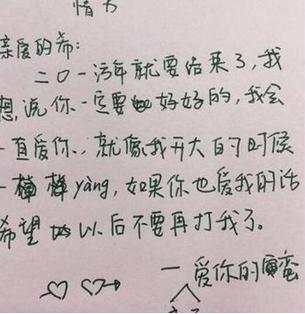 情书
亲爱的希:
二〇一污年就要结来了,我
想说你一定要好好的,我会
一直爱你,就像我开大的时候
一 yàng,如果你也爱我的话
希望 以后不要再打我了。
一爱你的蛮